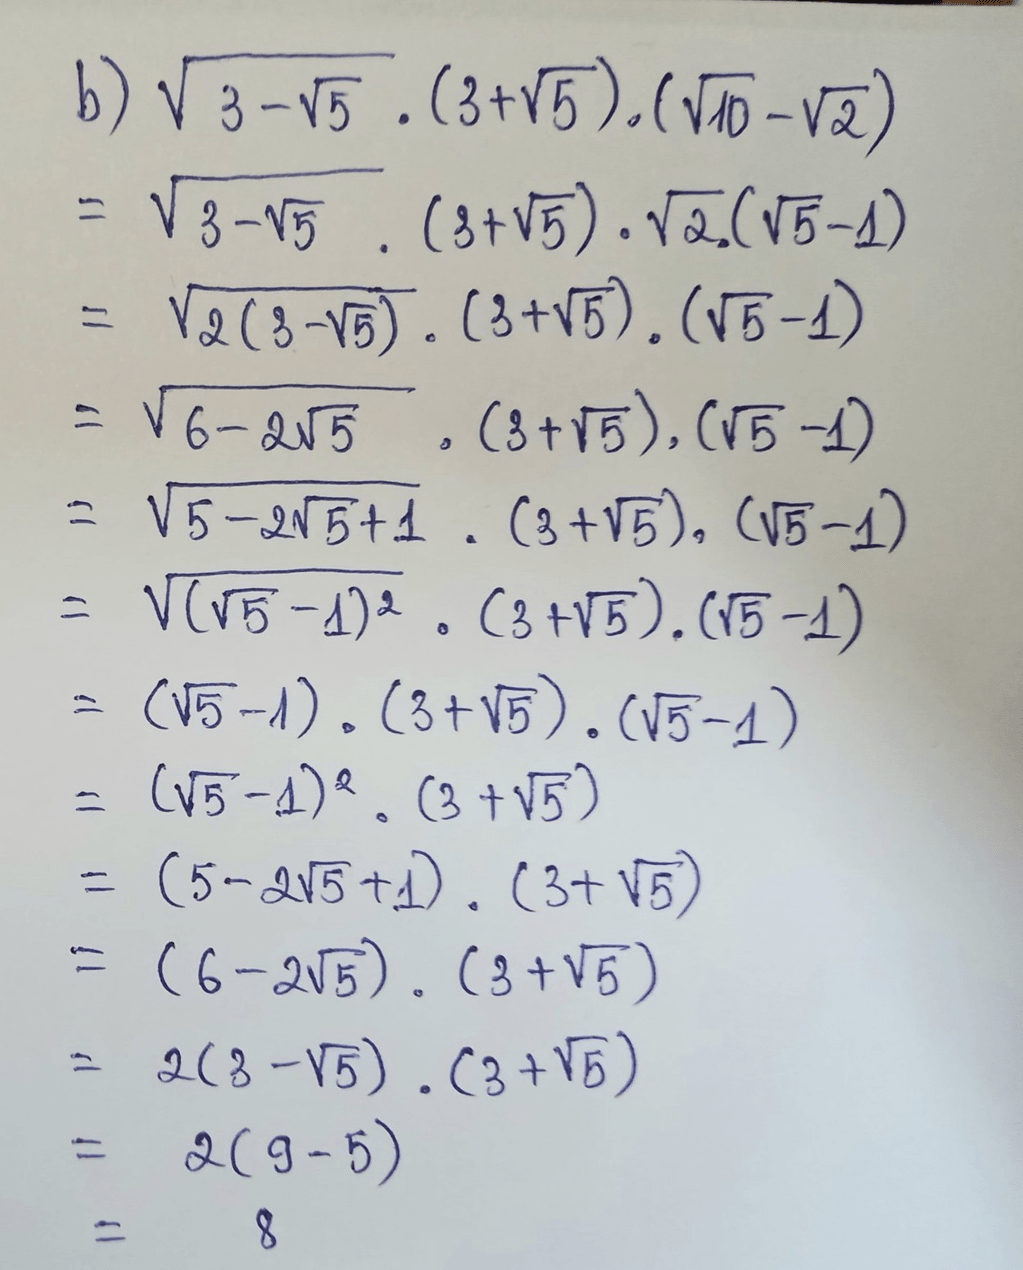 b) √(3-√5) . (3+√5).(√10-√2)
= √(3-√5) . (3+√5).√2.(√5-1)
= √(2(3-√5)) . (3+√5).(√5-1)
= √(6-2√5) . (3+√5).(√5-1)
= √(5-2√5+1) . (3+√5).(√5-1)
= √((√5-1)²) . (3+√5).(√5-1)
= (√5-1).(3+√5).(√5-1)
= (√5-1)².(3+√5)
= (5-2√5+1).(3+√5)
= (6-2√5).(3+√5)
= 2(3-√5).(3+√5)
= 2(9-5)
= 8